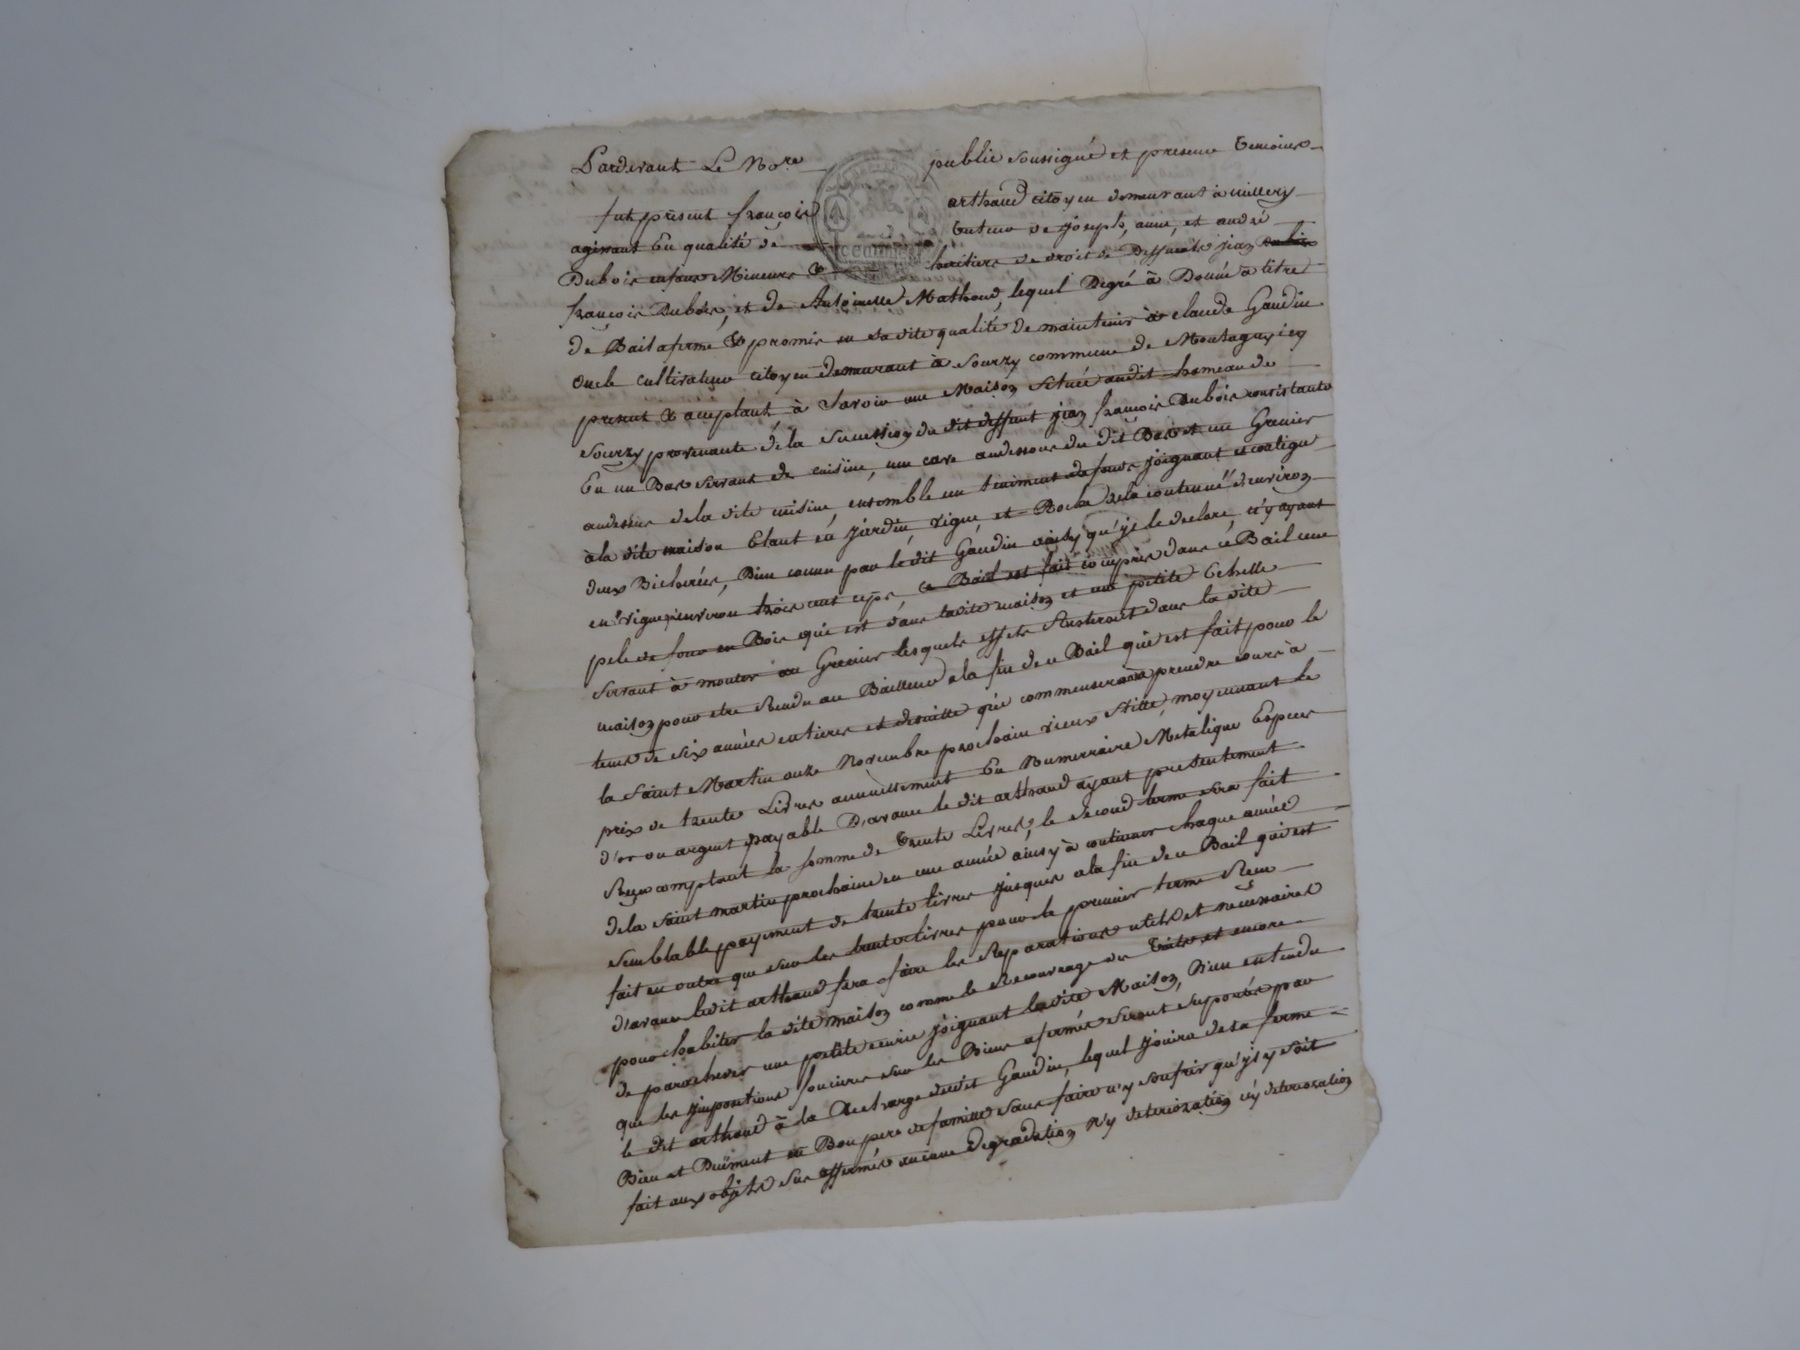 Pardevant Le No.re public soussigné et presence temoins
fut présent françois arthaud citoyen demeurant à millery
agissant En qualité de tuteur de joseph, anne, et andré
Dubois enfans Mineurs & heritiers de droit de Deffunts jean
françois Dubois, et de Antoinette Mathoud, lequel Degré à Donné a titre
de Bail aferme & promis en sa dite qualité de maintenir à claude Gaudin
oncle cultivateur citoyen demeurant à Sourzy commune de Montagny icy
present & aceptant, à Savoir une Maison Située audit hameau de
Sourzy provenante de la Succession du dit deffunt jean françois Dubois consistante
En un Bas Servant de cuisine, une cave audessous du dit Bas et un Grenier
audessus de la dite cuisine, ensemble un teniment de fonds joignant et contigu
à la dite maison Etant en jardin, vigne, et Roche de la contenue d'environ
deux Bicherées, Bien connu par le dit Gaudin ainsy qu'il le declare, n'y ayant
en vigne qu'environ trois cent ceps, ce Bail est fait compris dans ce Bail une
pele de four en Bois qui est dans la dite maison et une petite Echelle
Servant à monter au Grenier lesquels effets Resteront dans la dite
maison pour etre Rendu au Bailleur a la fin de ce Bail qui est fait pour le
tems de Six années entieres et de suitte qui commenseront a prendre cours à
la Saint Martin onze Novembre prochain vieux Stille, moyennant le
prix de trente Livres annuellement En Numerraire Metalique Especes
d'or ou argent payable D'avance le dit arthaud ayant presentement
Reçu comptant la somme de trente Livres, le second terme sera fait
de la Saint martin prochaine en une année ainsy à continuer chaque année
Semblable payement de trente livres jusques a la fin de ce Bail qui est
fait en outre que sur les trente livres pour le premier terme Reçu
d'avance ledit arthaud fera faire les Reparations utiles et necessaires
pour habiter la dite maison comme le Recouvrage des Toits et encore
de parachever une petite ecurie joignant la dite Maison, Bien entendu
que les jmpositions foncieres sur les Biens afermés Seront suportés par
le dit arthaud à la decharge dudit Gaudin, lequel jouira de sa ferme
Bien et Duëment en Bon pere de famille sans faire n'y soufrir qu'jl y soit
fait aux objets sus affermés aucune degradation n'y deterioration